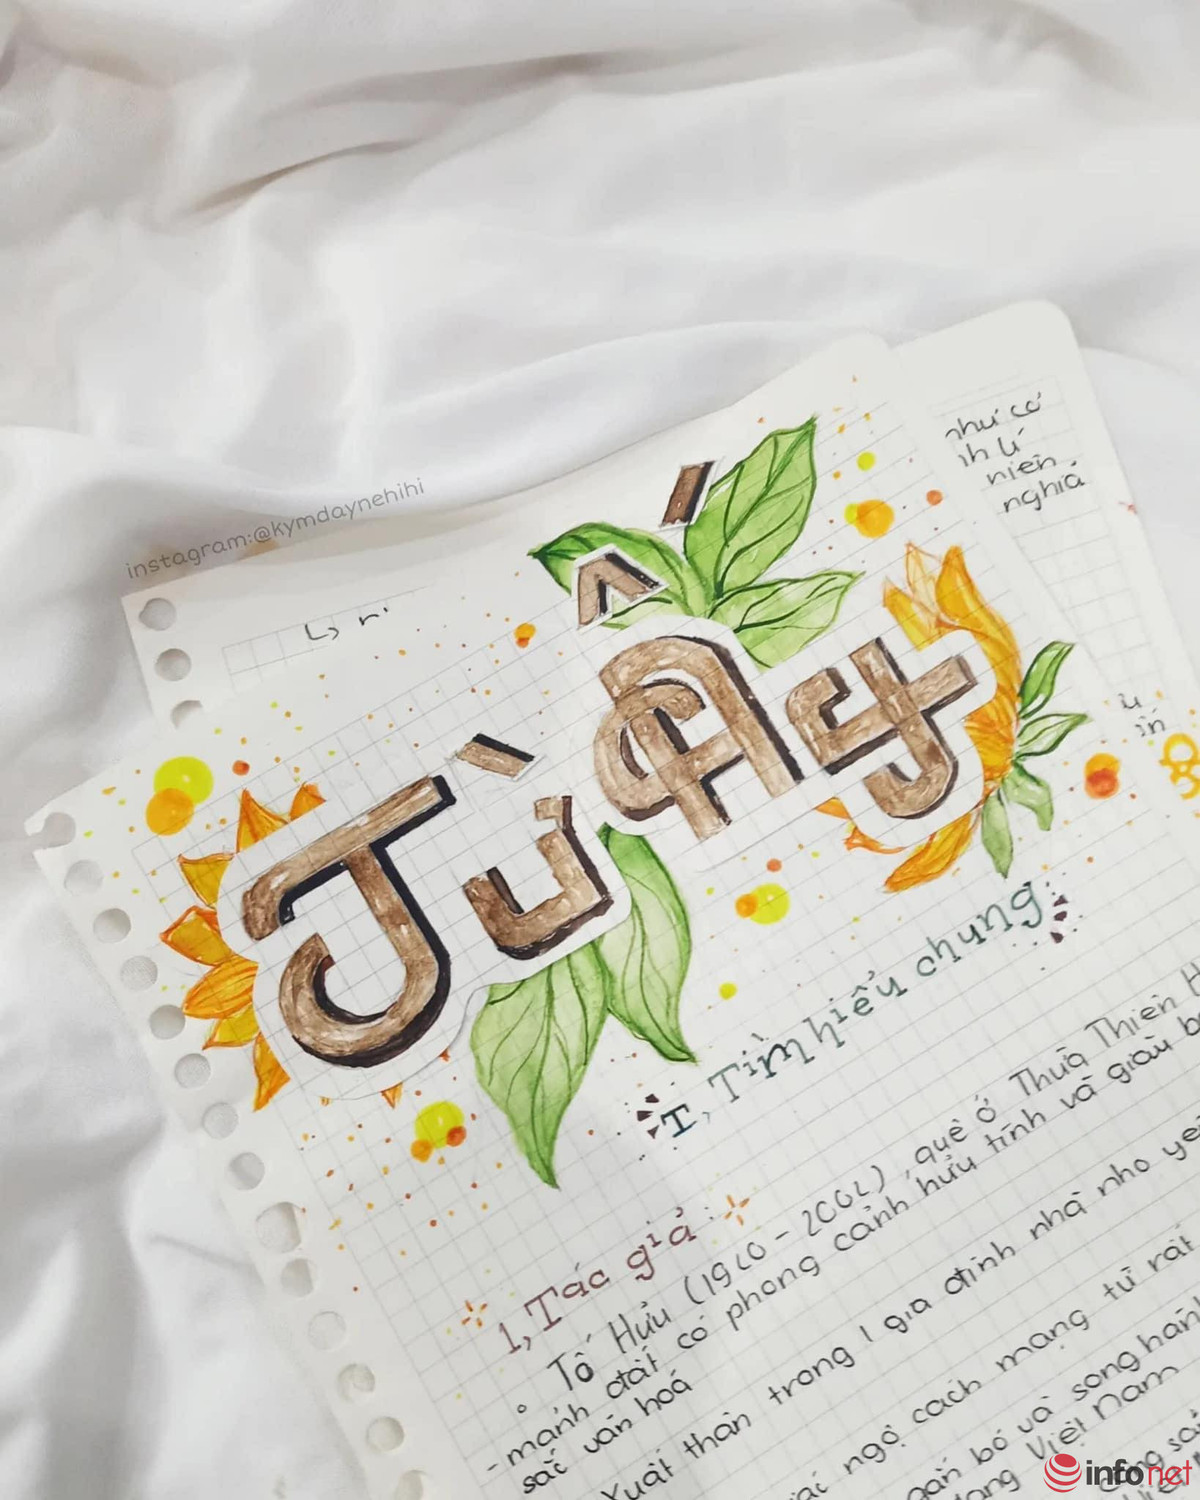 như cơ
nh lí
niên
nghĩa
instagram:@kymdaynehihi
Từ Ấy
I, Tìm hiểu chung
1, Tác giả :
Tố Hữu (1920 - 2002), quê ở Thừa Thiên H
- mảnh đất có phong cảnh hữu tình và giàu bả
sắc văn hoá
Xuất thân trong 1 gia đình nhà nho yê
ngộ cách mạng từ rất
gắn bó và song hàn
Việt Nam
infonet